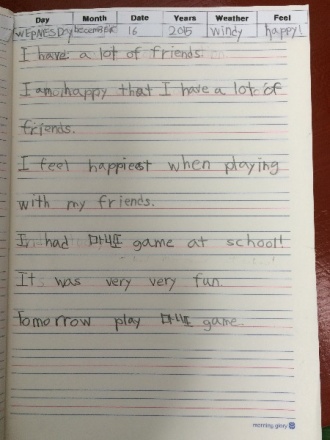 Day Month Date Years Weather Feel
WEPNESDay DecemBER 16 2015 windy happy!
I have a lot of friends.
I am happy that I have a lot of
friends.
I feel happiest when playing
with my friends.
I had 마니또 game at school!
It was very very fun.
Tomorrow play 마니또 game.
morning glory